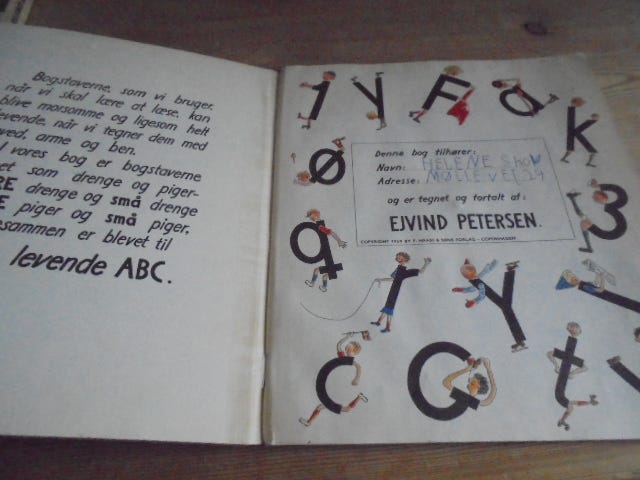 Bogstaverne, som vi bruger,
når vi skal lære at læse, kan
blive morsomme og ligesom helt
levende, når vi tegner dem med
ved, arme og ben.
vores bog er bogstaverne
et som drenge og piger-
RE drenge og små drenge
E piger og små piger,
sammen er blevet til
levende ABC.
1 y F a
k
ø
3
q
r Y
c G t
Denne bog tilhører:
Navn: HELENE Skov
Adresse: MØLLEVEJ 24
og er tegnet og fortalt af:
EJVIND PETERSEN.
COPYRIGHT 1959 BY P. HAASE & SØNS FORLAG - COPENHAGEN